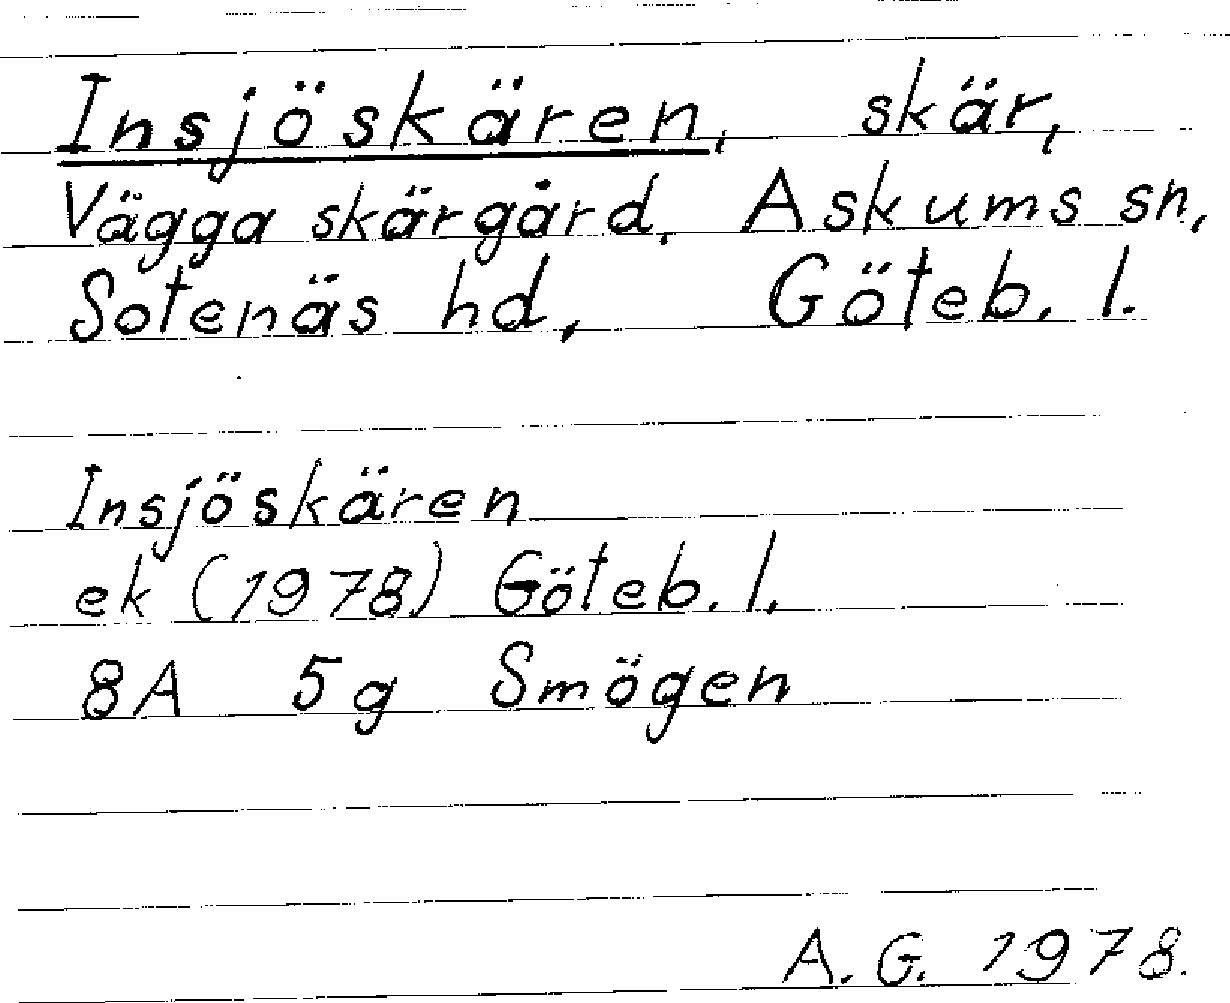 Insjöskären, skär,
Vägga skärgård, Askums sn,
Sotenäs hd, Göteb. l.
Insjöskären
ek (1978) Göteb. l.
8A 5g Smögen
A. G. 1978.